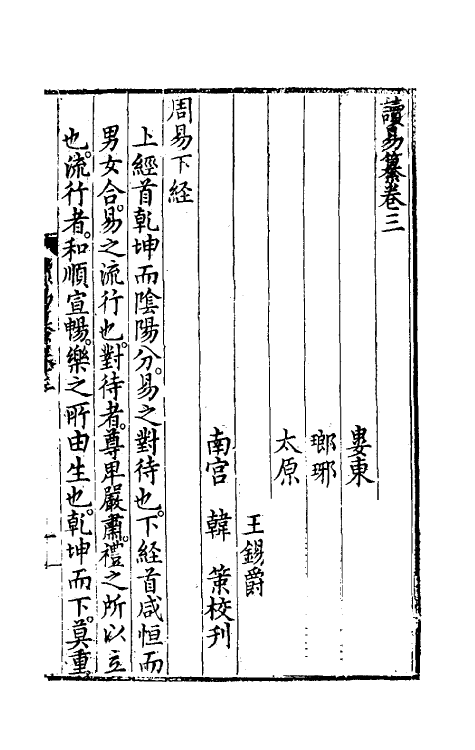 讀易纂卷三
婁東
瑯琊
太原
王錫爵
南宮　韓　策校刊
周易下經
上經首乾坤而陰陽分。易之對待也。下經首咸恒而
男女合。易之流行也。對待者。尊卑嚴肅。禮之所以立
也。流行者。和順宣暢。樂之所由生也。乾坤而下。莫重